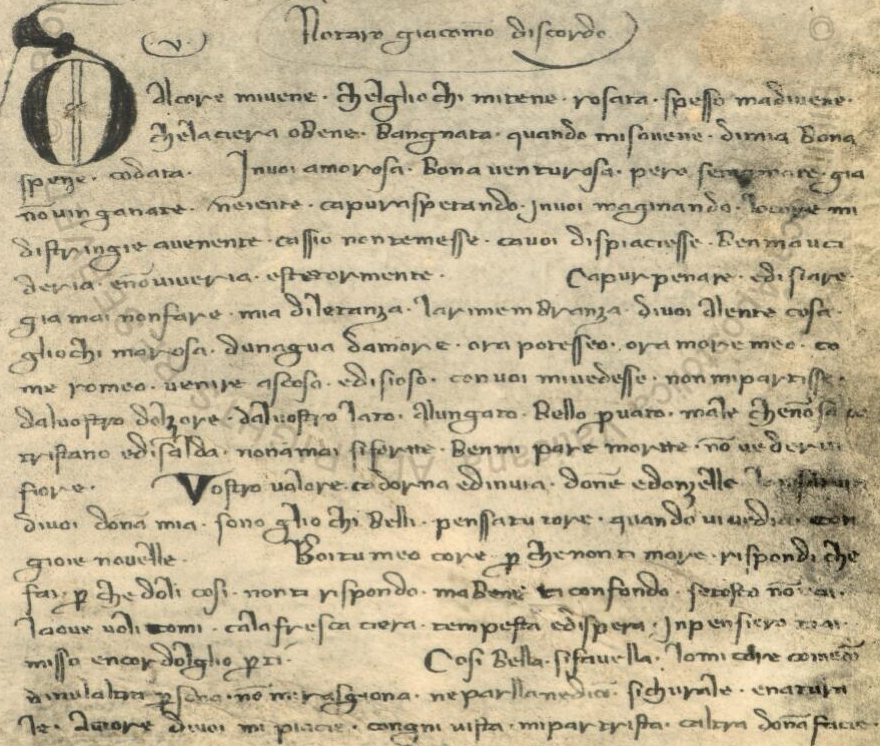 .v. Notaro giacomo discordo
D Alcore mivene · chelgliochi mitene · rosata · spesso madivene ·
chelaciera obene · bangnata · quando misovene · dimia bona
spene · codata · Jnvoi amorosa · bona venturosa · pero gia
nōvinganate · neiente · capuraspetando · jnvoi maginando · locore mi
distringie avenente · cassio nontemesse · cavoi dispiaciesse · benmauci
deria · enōviveria · estetormente · Capurpenare · edisiare ·
giamai nonfare · mia diletanza · larimembranza · divoi alente cosa ·
gliochi marosa · dunagua damore · ora potesseo · ora more meo · co
me romeo · venire ascoso · edisioso · convoi mivedesse · nonmipartisse ·
dalvostro dolzore · dalvostro lato · alungato · bello pvato · male chenōsa
tristano edisalda · nonamai siforte · benmi pare morte · nō vederui
fiore · Vostro valore cadorna edinvia · donē edonzelle
divoi donā mia · sono gliochi belli · penssatutore · quando vivedia · con
gioie novelle · Boitumeo core · pchenonti more · rispondi che
fai · pchedoli cosi · nonti rispondo · mabene ticonfondo · setosto nō
laove voli comi · calafresca ciera · tempesta edispera · Jnpensiero
misso encordolglio pti · Cosi bella · sifavella ·
dinulaltra psona · nō meragiona · neparllanedicie · sichurale · enatura
le · Amore divoi mi piacie · congni vista · mipartrista · caltra donā facie ·